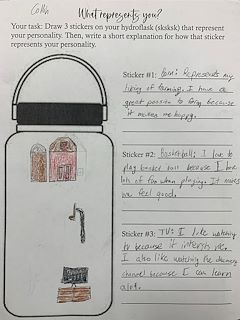 Colin
What represents you?
Your task: Draw 3 stickers on your hydroflask (sksksk) that represent
your personality. Then, write a short explanation for how that sticker
represents your personality.
Sticker #1: Barn: Represents my
liking of farming. I have a
great passion to farm because
it makes me happy.
Sticker #2: Basketball: I love to
play basket ball because I have
lots of fun when playing. It makes
me feel good.
Sticker #3: TV: I like watching
tv because it interests me.
I also like watching the discovery
channel because I can learn
alot.